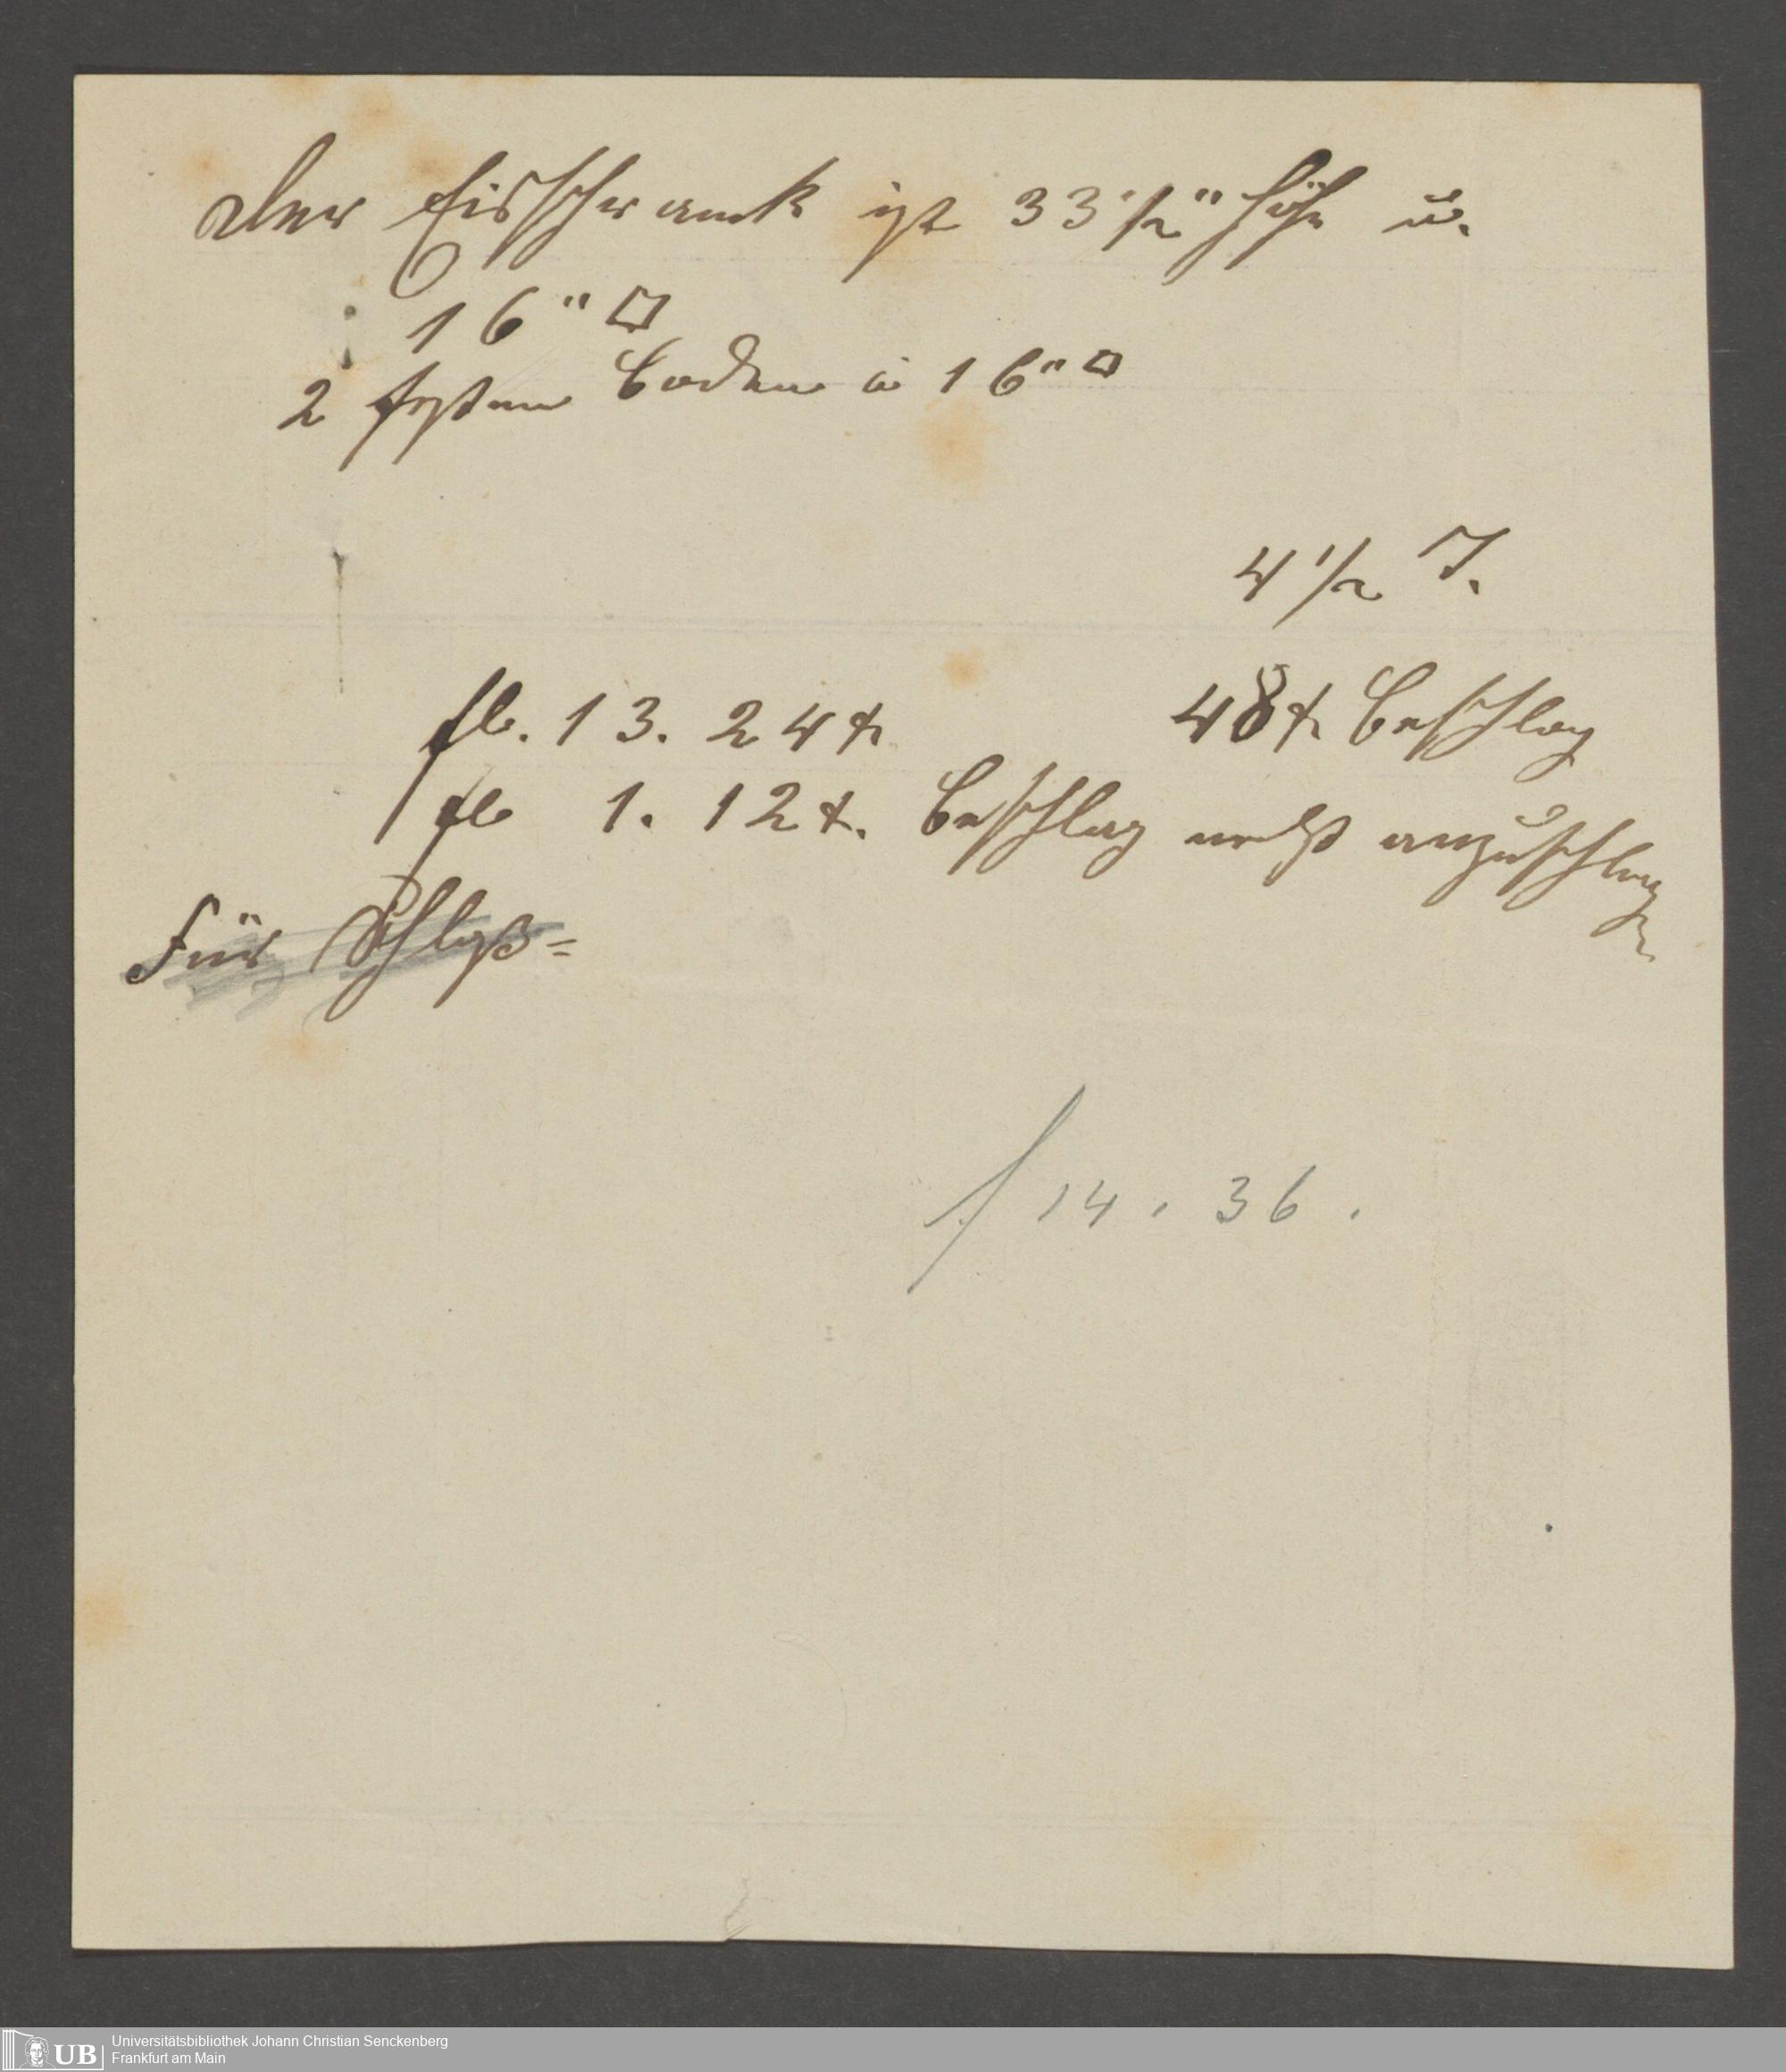 Der Eisschrank ist 33 1/2" höhe u.
16" □
2 festen Boden a 16" □
4 1/2 T.
fl. 13. 24 x 48 x Beschlag
fl 1. 12 x. Beschlag nebst anzuschlagen
Für Schloß=
f 14. 36.
UB Universitätsbibliothek Johann Christian Senckenberg
Frankfurt am Main